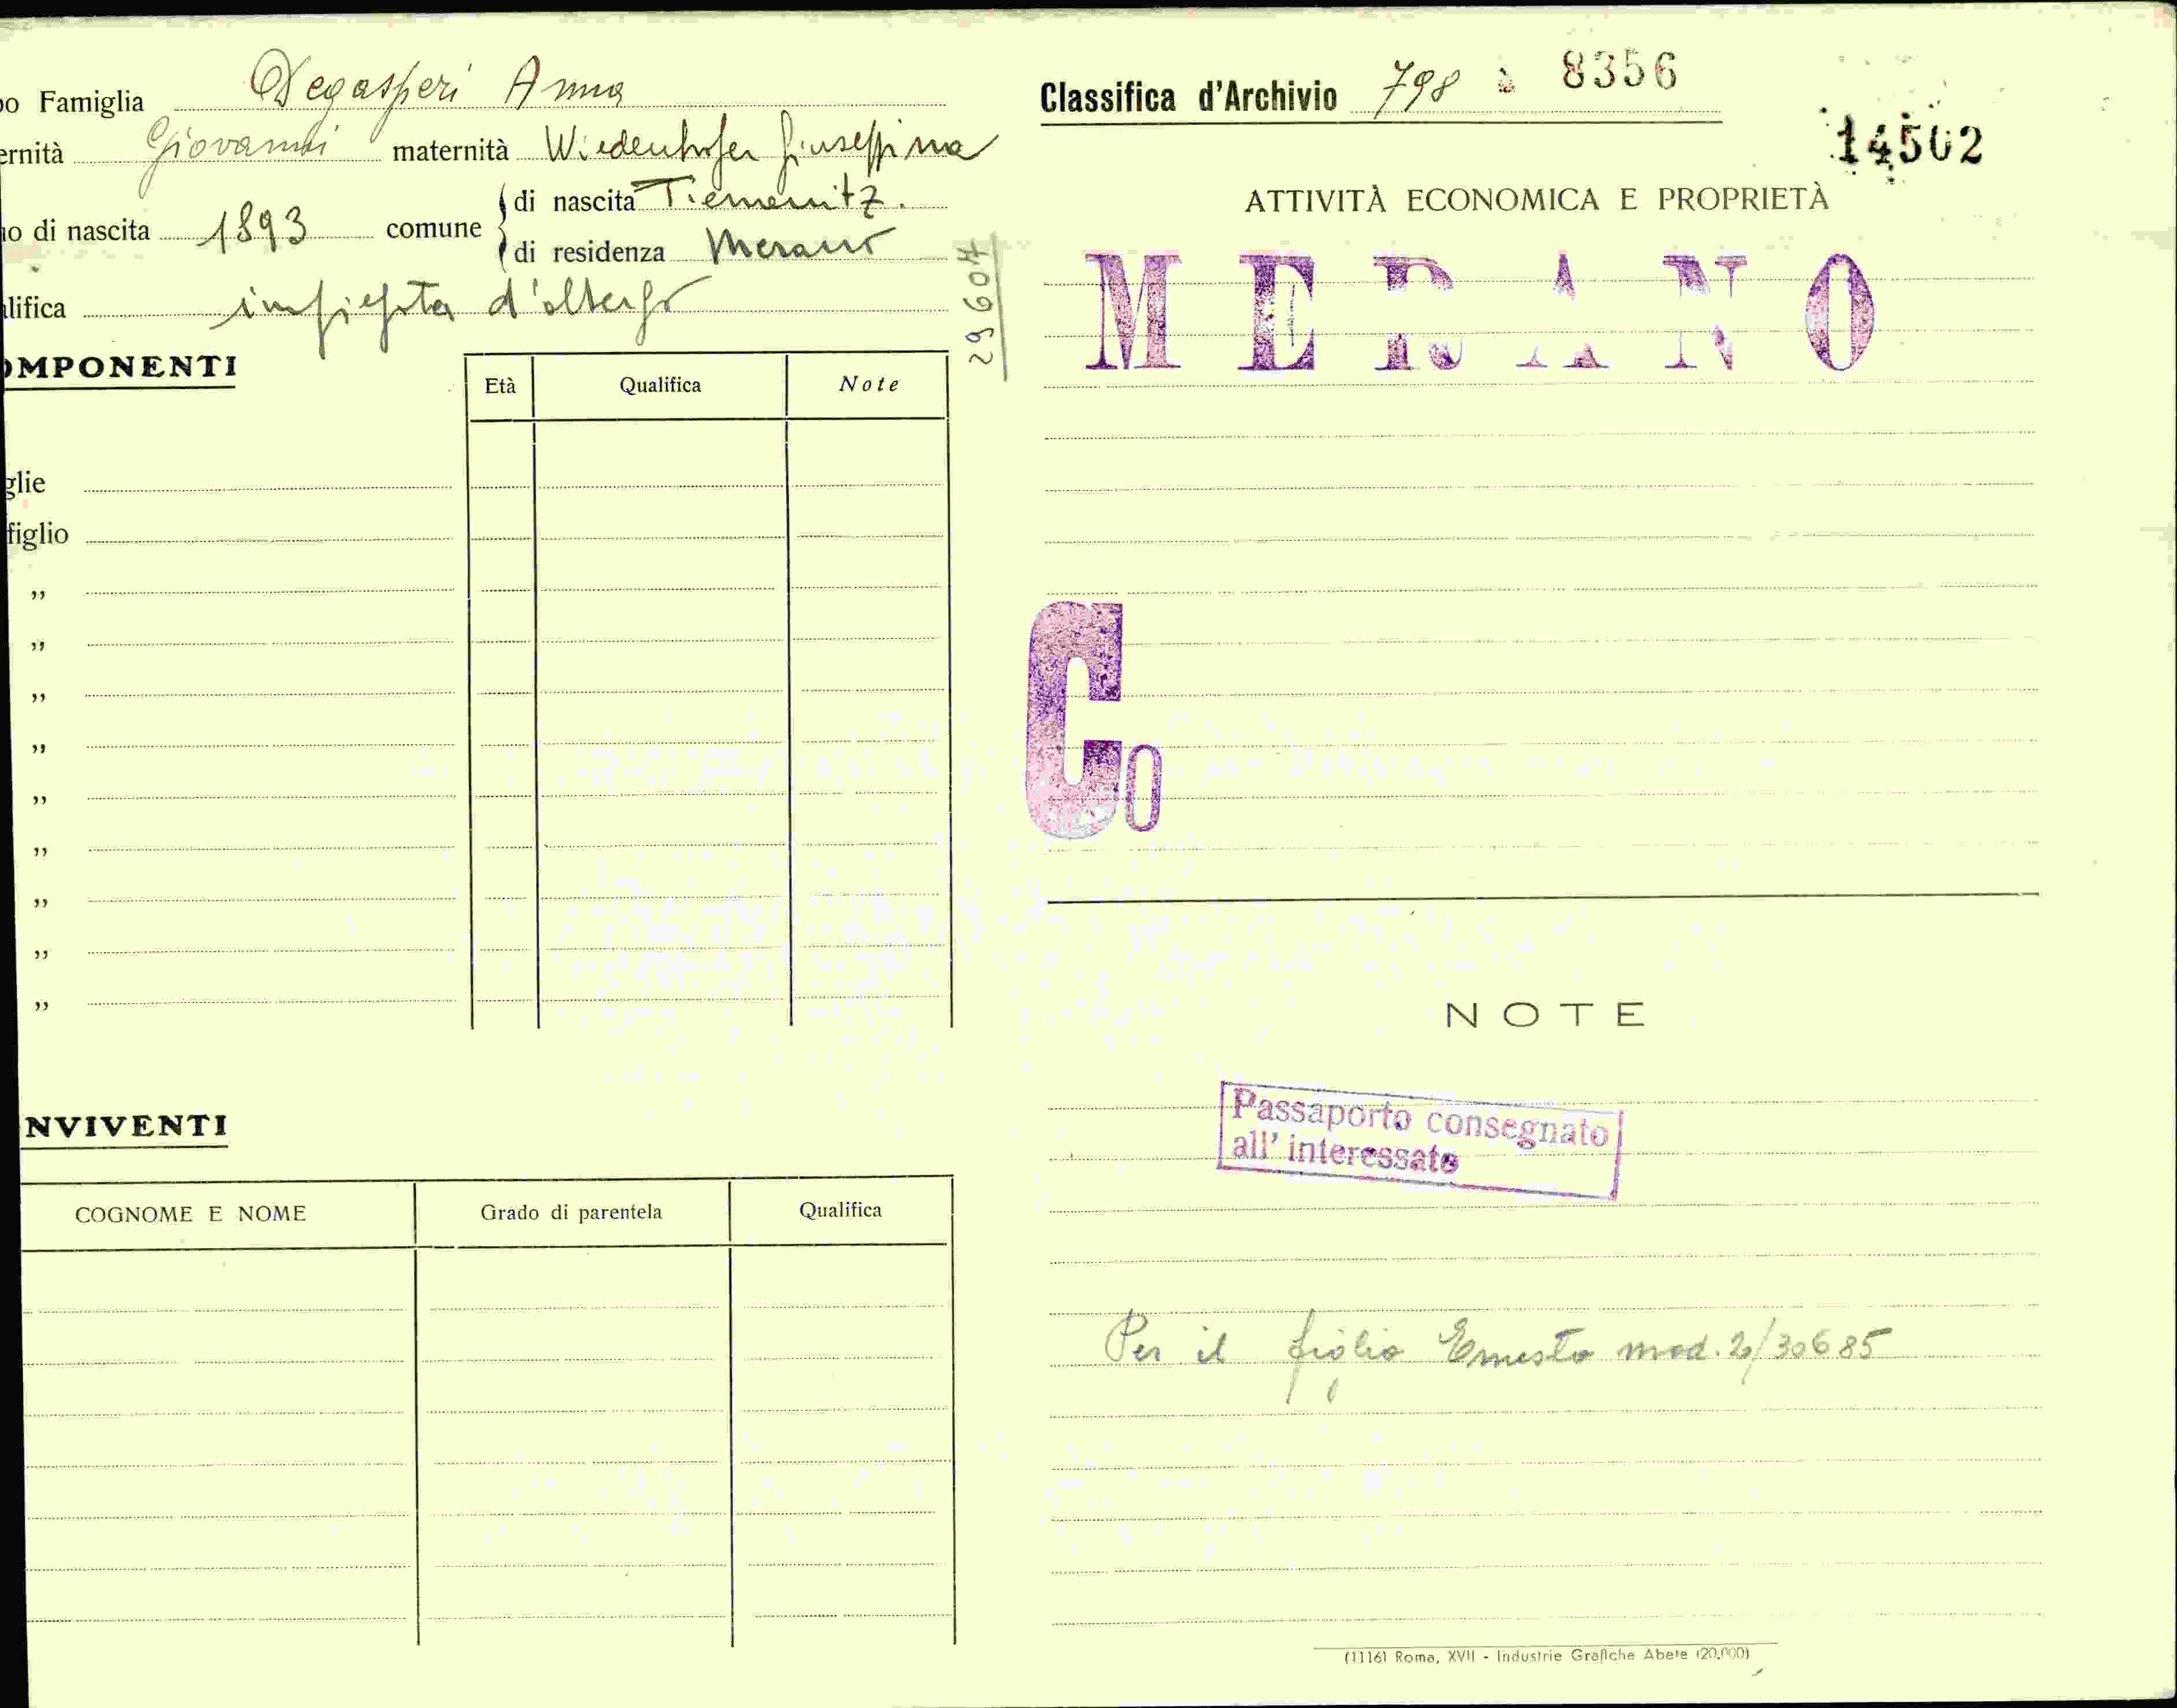 po Famiglia Degasperi Anna
ernità Giovanni maternità Wiedenhofer Giuseppina
no di nascita 1893 comune
di nascita Tiemenitz.
di residenza Merano
lifica impiegata d'albergo
OMPONENTI
Età Qualifica Note
glie
figlio
„
„
„
„
„
„
„
„
„
NVIVENTI
COGNOME E NOME Grado di parentela Qualifica
Classifica d'Archivio 798 8356
14502
ATTIVITÀ ECONOMICA E PROPRIETÀ
MERANO
Co
NOTE
Passaporto consegnato
all' interessato
Per il figlio Ernesto mod. 2/30685
(1116) Roma, XVII - Industrie Grafiche Abete (20.000)